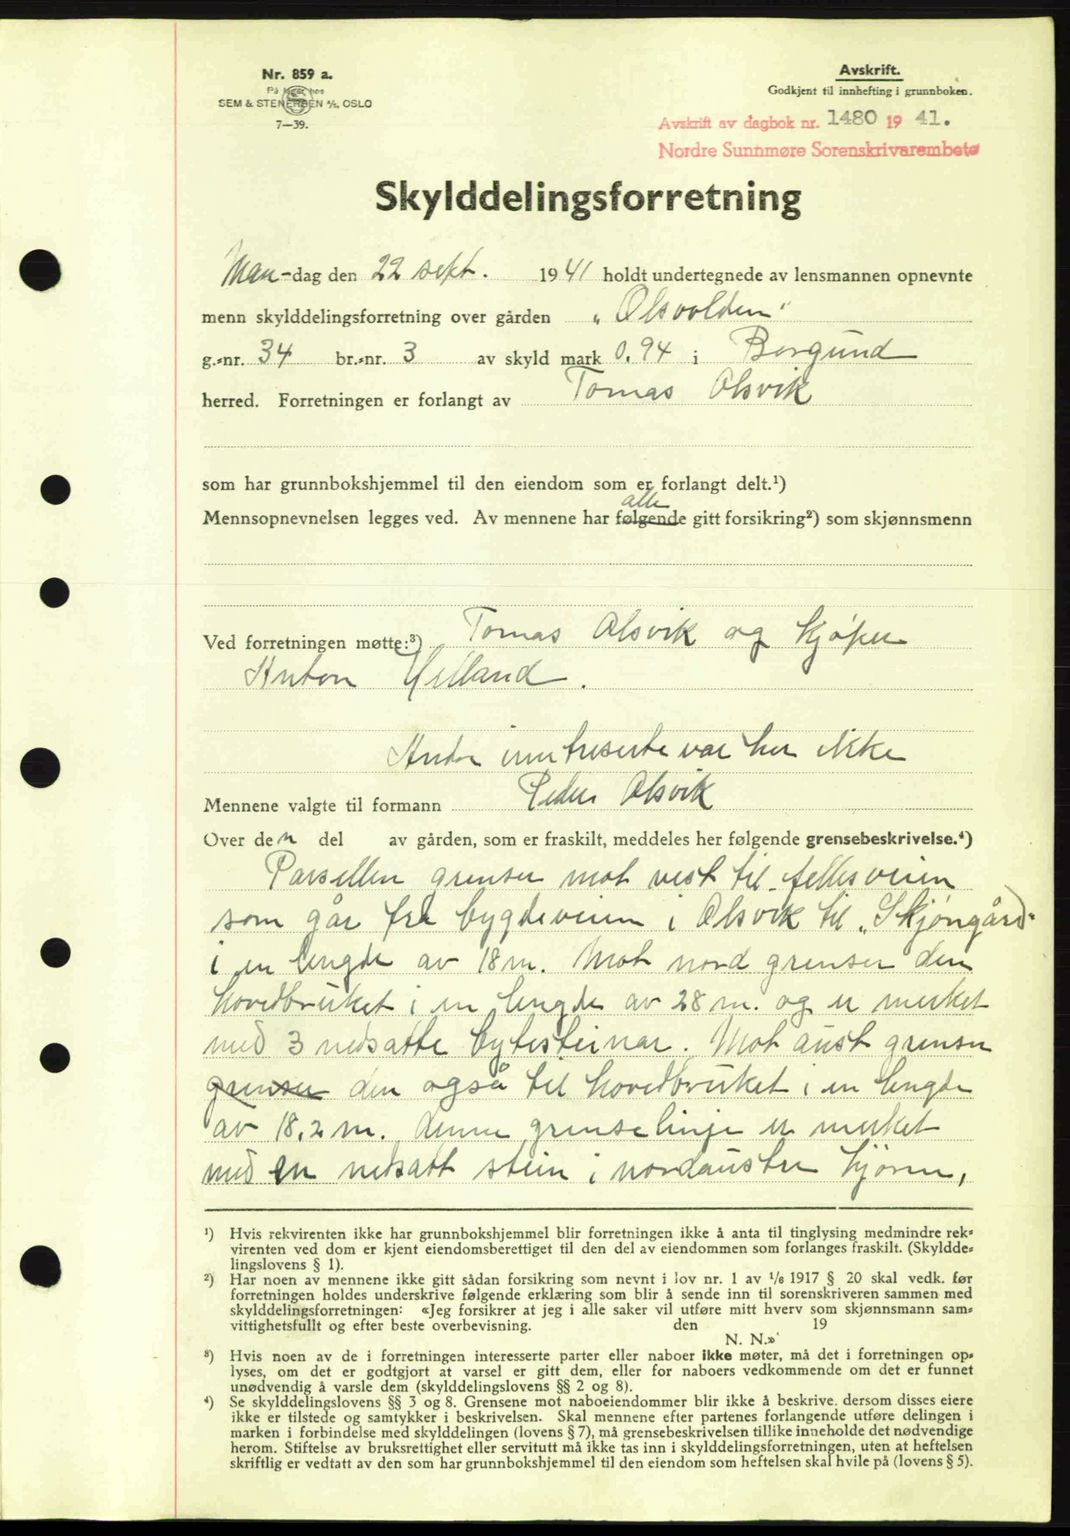 Nr. 859 a.
På lager hos
SEM & STENERSEN A/S, OSLO
7—39.
Avskrift.
Godkjent til innhefting i grunnboken.
Avskrift av dagbok nr. 1480 19 41.
Nordre Sunnmøre Sorenskrivarembete
Skylddelingsforretning
Man-dag den 22 sept. 1941 holdt undertegnede av lensmannen opnevnte
menn skylddelingsforretning over gården „Olsvolden"
g.-nr. 34 br.-nr. 3 av skyld mark 0.94 i Borgund
herred. Forretningen er forlangt av Tomas Olsvik
som har grunnbokshjemmel til den eiendom som er forlangt delt.¹)
alle
Mennsopnevnelsen legges ved. Av mennene har følgende gitt forsikring²) som skjønnsmenn
Ved forretningen møtte:³) Tomas Olsvik og kjøper
Anton Helland.
Andre inntreserte var her ikke
Mennene valgte til formann Peder Olsvik
Over den del av gården, som er fraskilt, meddeles her følgende grensebeskrivelse.⁴)
Parsellen grenser mot vest til fellesveien
som går fra bygdeveien i Olsvik til „Skjöngård"
i en lengde av 18 m. Mot nord grenser den
hovedbruket i en lengde av 28 m. og er merket
med 3 nedsatte bytesteinar. Mot aust grenser
grenser den også til hovedbruket i en lengde
av 18,2 m. denne grenselinje er merket
med en nedsatt stein i nordaustre hjørne,
¹) Hvis rekvirenten ikke har grunnbokshjemmel blir forretningen ikke å anta til tinglysing medmindre rek-
virenten ved dom er kjent eiendomsberettiget til den del av eiendommen som forlanges fraskilt. (Skyldde-
lingslovens § 1).
²) Har noen av mennene ikke gitt sådan forsikring som nevnt i lov nr. 1 av 1/6 1917 § 20 skal vedk. før
forretningen holdes underskrive følgende erklæring som blir å sende inn til sorenskriveren sammen med
skylddelingsforretningen: «Jeg forsikrer at jeg i alle saker vil utføre mitt hverv som skjønnsmann sam-
vittighetsfullt og efter beste overbevisning. den 19
N. N.»
³) Hvis noen av de i forretningen interesserte parter eller naboer ikke møter, må det i forretningen op-
lyses, om det er godtgjort at varsel er gitt dem, eller for naboers vedkommende om det er funnet
unødvendig å varsle dem (skylddelingslovens §§ 2 og 8).
⁴) Se skylddelingslovens §§ 3 og 8. Grensene mot naboeiendommer blir ikke å beskrive, dersom disses eiere
ikke er tilstede og samtykker i beskrivelsen. Skal mennene efter partenes forlangende utføre delingen i
marken i forbindelse med skylddelingen (lovens § 7), må grensebeskrivelsen tillike inneholde det nødvendige
herom. Stiftelse av bruksrettighet eller servitutt må ikke tas inn i skylddelingsforretningen, uten at heftelsen
skriftlig er vedtatt av den som har grunnbokshjemmel til den eiendom som heftelsen skal hvile på (lovens § 5).